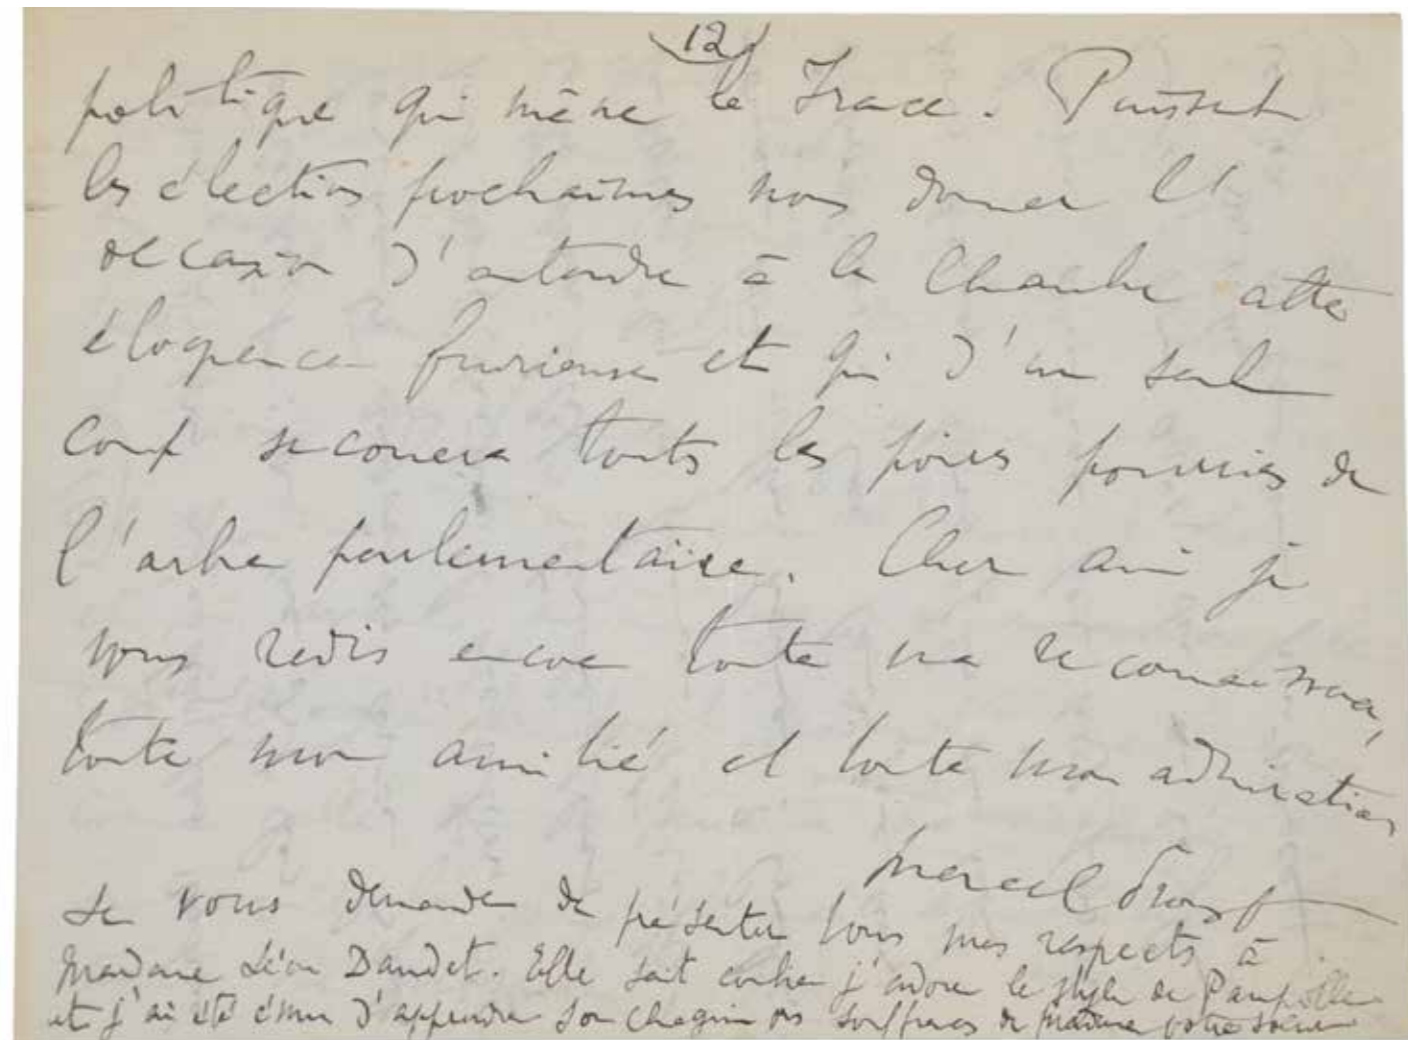 12
politique qui mène la France. Puissent
les élections prochaines nous donner l'
occasion d'entendre à la Chambre cette
éloquence furieuse et qui d'un seul
coup secouera toutes les poires pourries de
l'arbre parlementaire. Cher ami je
vous redis encore toute ma reconnaissance,
toute mon amitié et toute mon admiration
Marcel Proust
Je vous demande de présenter tous mes respects à
Madame Léon Daudet. Elle sait combien j'adore le style de Pampille
et j'ai été ému d'apprendre son chagrin souffrances de Madame votre